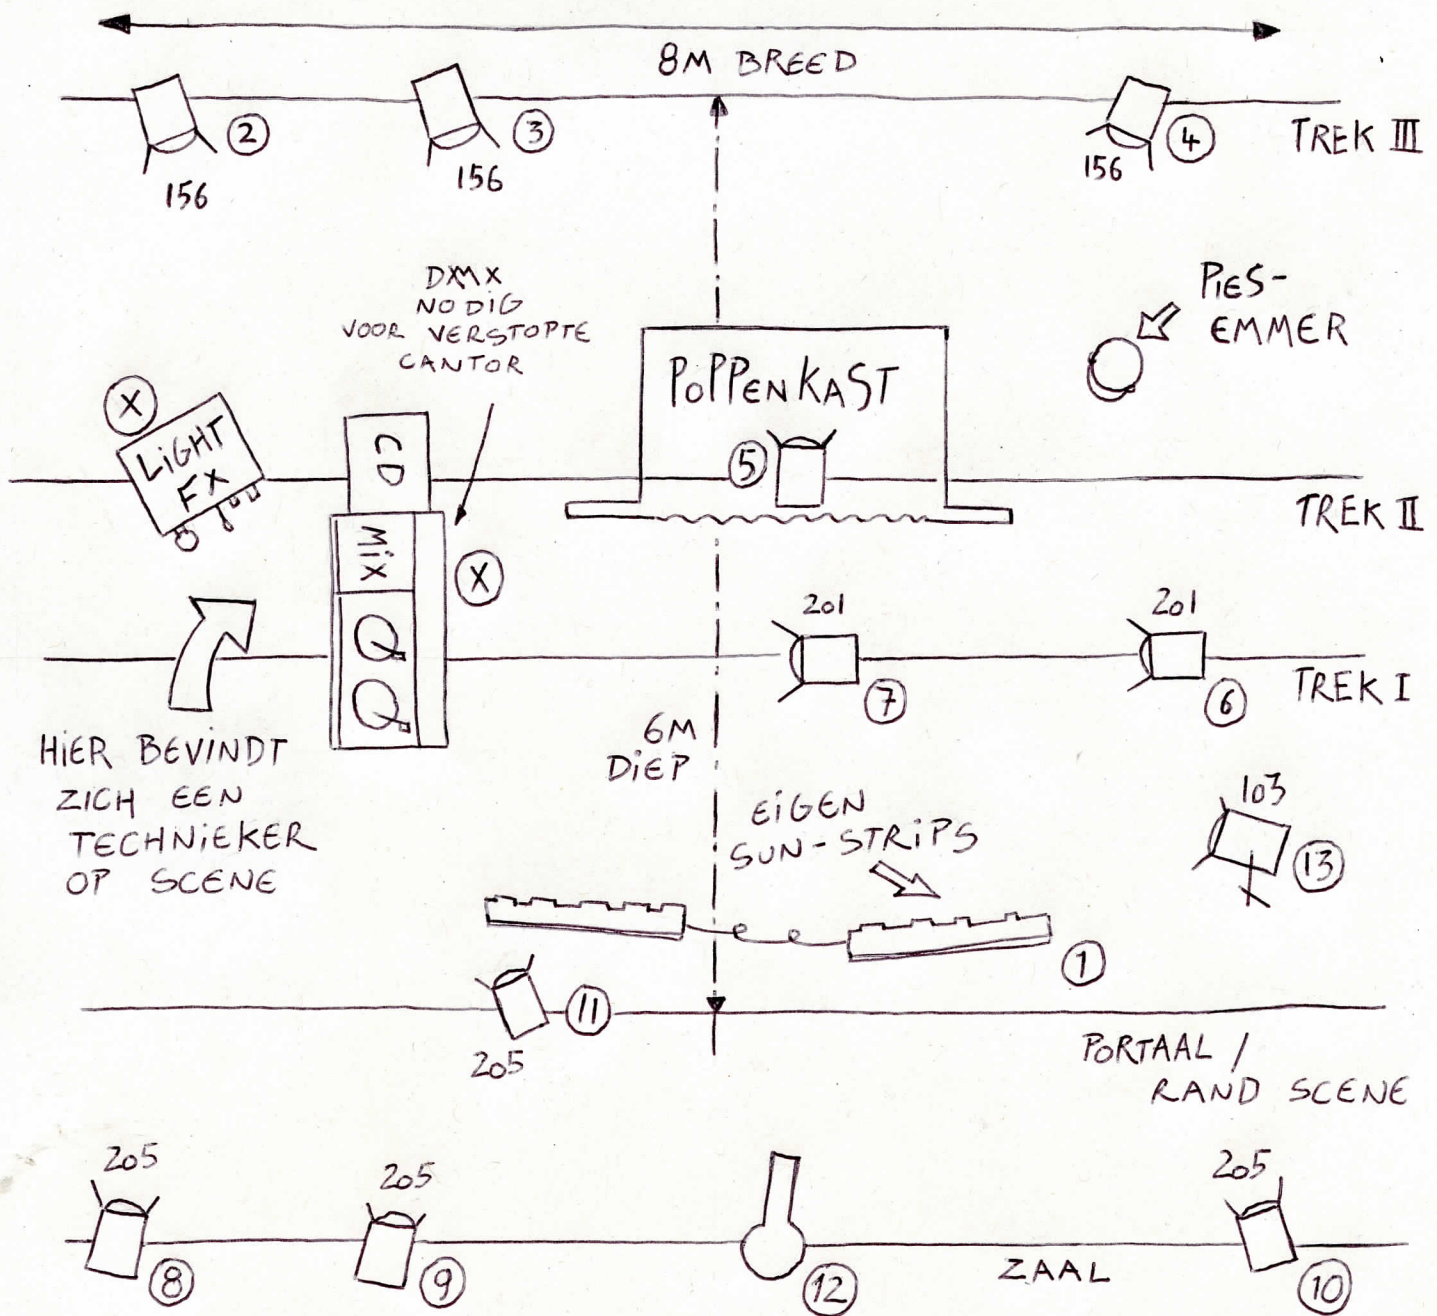 8M BREED
2
3
4
TREK III
156
156
156
DMX
NODIG
VOOR VERSTOPTE
CANTOR
PIES-
EMMER
X
LIGHT
FX
CD
POPPENKAST
5
TREK II
MIX
X
201
201
7
6
TREK I
HIER BEVINDT
ZICH EEN
TECHNIEKER
OP SCENE
6M
DIEP
EIGEN
SUN-STRIPS
103
13
1
11
205
PORTAAL /
RAND SCENE
205
205
205
8
9
12
ZAAL
10